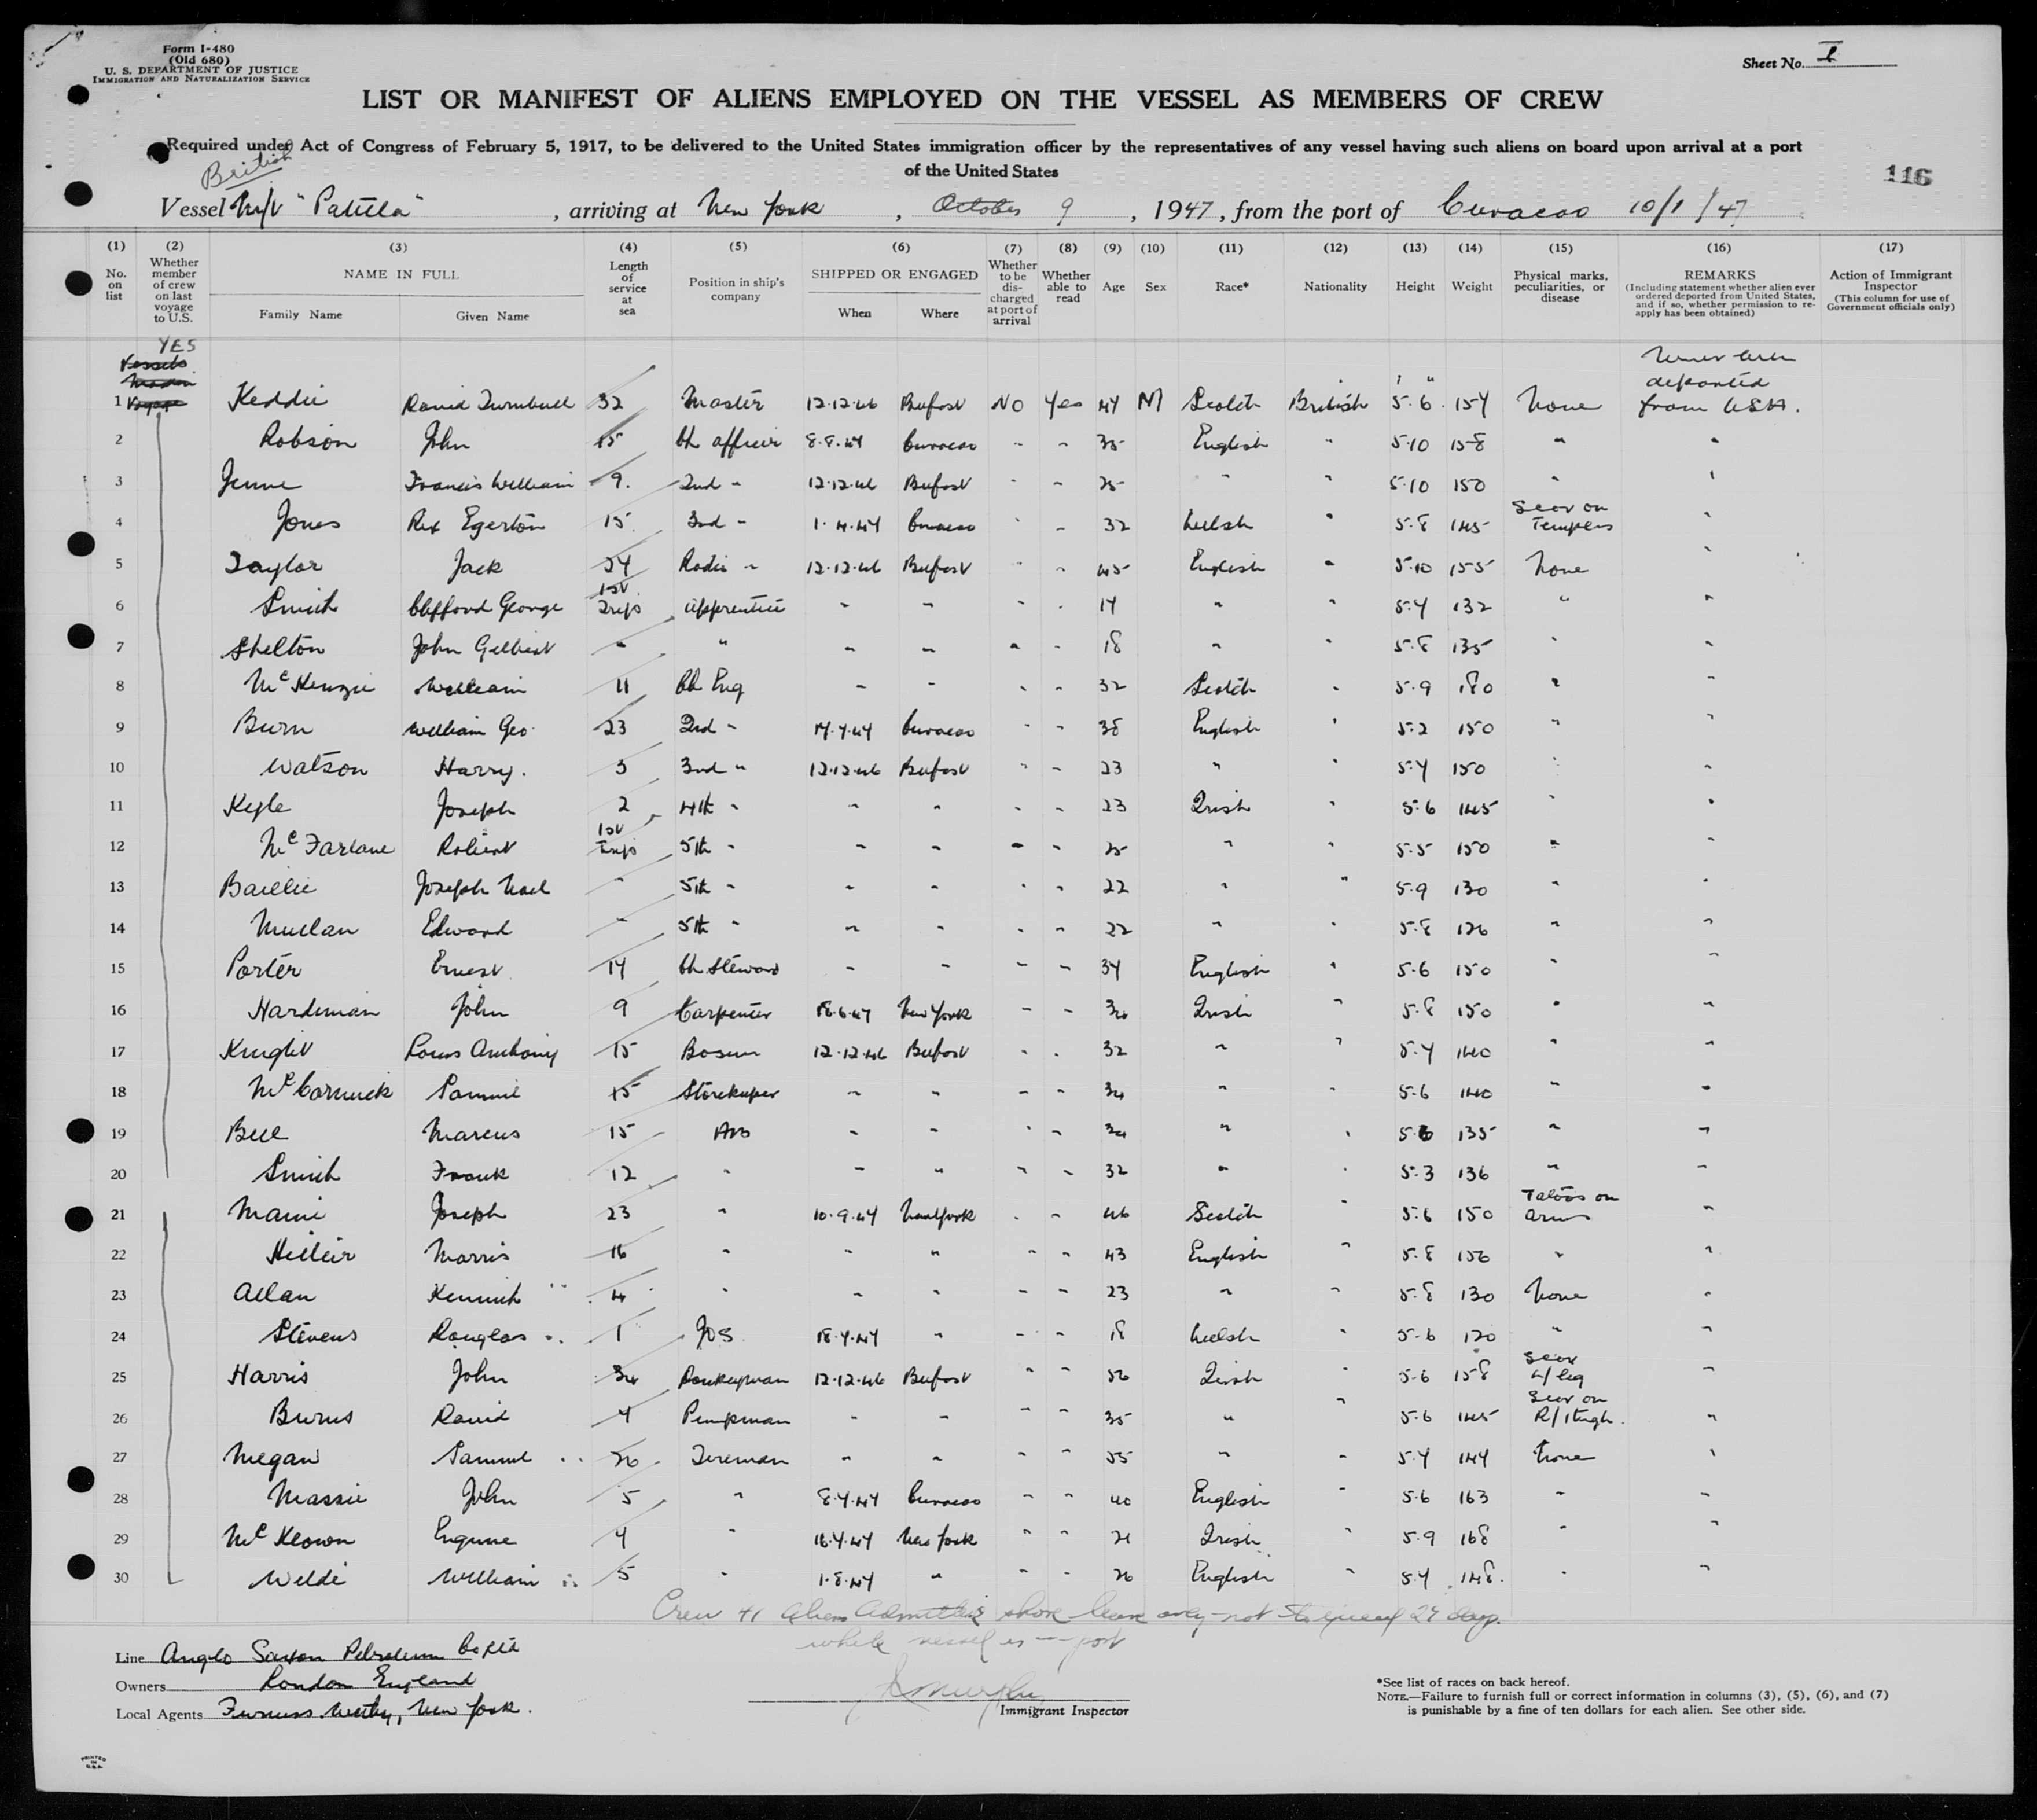 Form I-480
(Old 680)
U. S. DEPARTMENT OF JUSTICE
IMMIGRATION AND NATURALIZATION SERVICE
Sheet No. I
LIST OR MANIFEST OF ALIENS EMPLOYED ON THE VESSEL AS MEMBERS OF CREW
Required under Act of Congress of February 5, 1917, to be delivered to the United States immigration officer by the representatives of any vessel having such aliens on board upon arrival at a port
of the United States
British
116
Vessel M/V "Patella", arriving at New York, October 9, 1947, from the port of Curacao 10/1/47
(1) (2) (3) (4) (5) (6) (7) (8) (9) (10) (11) (12) (13) (14) (15) (16) (17)
No. on list
Whether member of crew on last voyage to U.S.
NAME IN FULL
Family Name
Given Name
Length of service at sea
Position in ship's company
SHIPPED OR ENGAGED
When
Where
Whether to be discharged at port of arrival
Whether able to read
Age
Sex
Race*
Nationality
Height
Weight
Physical marks, peculiarities, or disease
REMARKS
(Including statement whether alien ever ordered deported from United States, and if so, whether permission to reapply has been obtained)
Action of Immigrant Inspector
(This column for use of Government officials only)
YES
Never been
deported
1 Keddie David Turnbull 32 Master 12.12.46 Belfast No Yes 47 M Scotch British 5' 6" 154 None from USA.
2 Robson John 15 Ch officer 8.8.47 Curacao " " 35 English " 5.10 158 " "
3 Francis William 9 2nd " 12.12.46 Belfast " " 25 " " 5.10 150 " "
Scar on
4 Jones Rex Egerton 15 3rd " 1.4.47 Curacao " " 32 Welsh " 5.8 145 "
5 Taylor Jack 27 Radio " 12.12.46 Belfast " " 45 English " 5.10 155 None "
1st
6 Smith Clifford George Trip apprentice " " " " 17 " " 5.7 132 " "
7 Shelton John Gilbert " " " " " " 18 " " 5.8 135 " "
8 McKenzie William 11 Ch Eng " " " " 32 Scotch " 5.9 180 " "
9 Burn William Geo. 23 2nd " 17.7.47 Curacao " " 38 English " 5.2 150 " "
10 Watson Harry. 3 3rd " 12.12.46 Belfast " " 23 " " 5.7 150 " "
11 Kyle Joseph 2 4th " " " " " 23 Irish " 5.6 145 " "
1st
12 McFarlane Robert Trip 5th " " " " " 25 " " 5.5 150 " "
13 Baillie Joseph " 5th " " " " " 22 " " 5.9 130 " "
14 Mullan Edward " 5th " " " " " 22 " " 5.8 126 " "
15 Porter Ernest 14 Ch Steward " " " " 34 English " 5.6 150 " "
16 Hardiman John 9 Carpenter 18.6.47 New York " " Irish " 5.8 150 " "
17 Knight Louis Anthony 15 Bosun 12.12.46 Belfast " " 32 " " 5.7 140 " "
18 McCormick Samuel 15 Storekeeper " " " " " " 5.6 140 " "
19 Bell Marcus 15 AB " " " " " " 135 " "
20 Smith Frank 12 " " " " " 32 " " 5.3 136 " "
Tatoos on
21 Joseph 23 " 10.9.47 New York " " 46 Scotch " 5.6 150 arms "
22 Morris 16 " " " " " 43 English " 5.8 " "
23 Allan Kenneth 4 " " " " " 23 " " 5.8 130 None "
24 Stevens Douglas 1 JOS 18.7.47 " " " 18 Welsh " 5.6 120 " "
Scar
25 Harris John Donkeyman 12.12.46 Belfast " " Irish " 5.6 158 L/leg "
Scar on
26 Burns David 7 Pumpman " " " " 35 " " 5.6 145 R/Thigh. "
27 Megaw Samuel Fireman " " " " 55 " " 5.7 147 None "
28 Massie John 5 " 8.7.47 Curacao " " 40 English " 5.6 163 " "
29 McKeown Eugene 7 " 16.7.47 New York " " 21 Irish " 5.9 168 " "
30 William 5 " 1.8.47 " " " 26 English " 5.7 148 " "
Crew 41 aliens Admitted shore leave only - not to exceed 29 days.
while vessel in port
Line Anglo Saxon Petroleum Co Ltd
Owners London England
Local Agents Furness Withy, New York.
Immigrant Inspector
*See list of races on back hereof.
NOTE.—Failure to furnish full or correct information in columns (3), (5), (6), and (7)
is punishable by a fine of ten dollars for each alien. See other side.
PRINTED
IN
U.S.A.